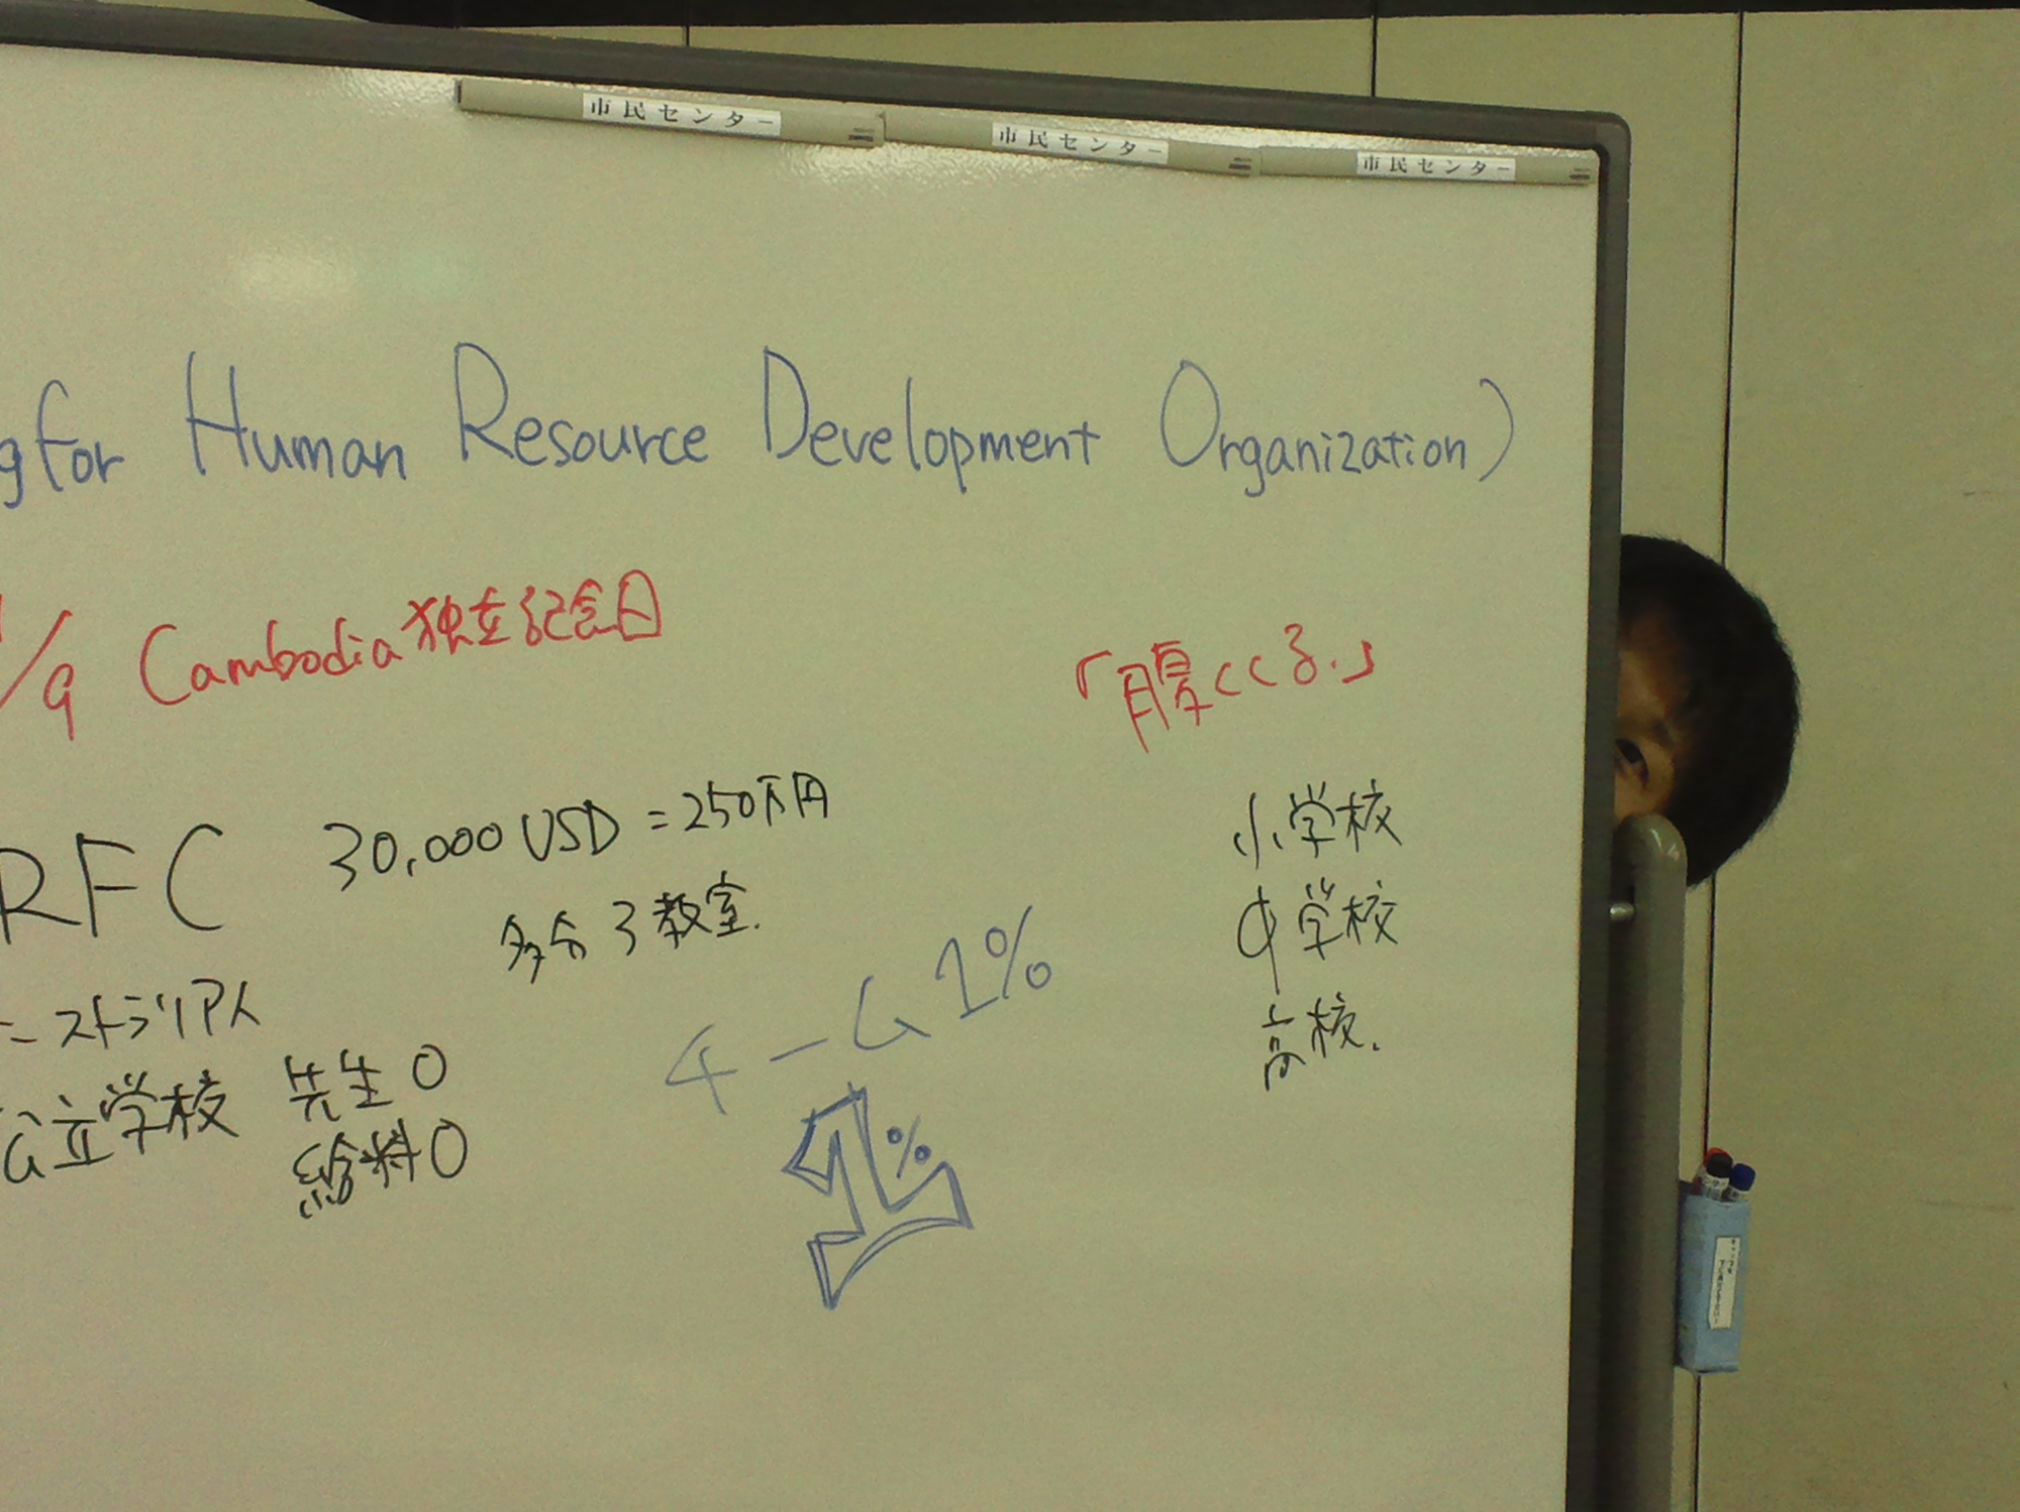 市民センター
市民センター
市民センター
g for Human Resource Development Organization)
/9 Cambodia 独立記念日
「腹くくる.」
RFC 30,000 USD = 250万円
多分 3 教室.
ーストラリア人
公立学校 先生 0
給料 0
1%
1%
小学校
中学校
高校.